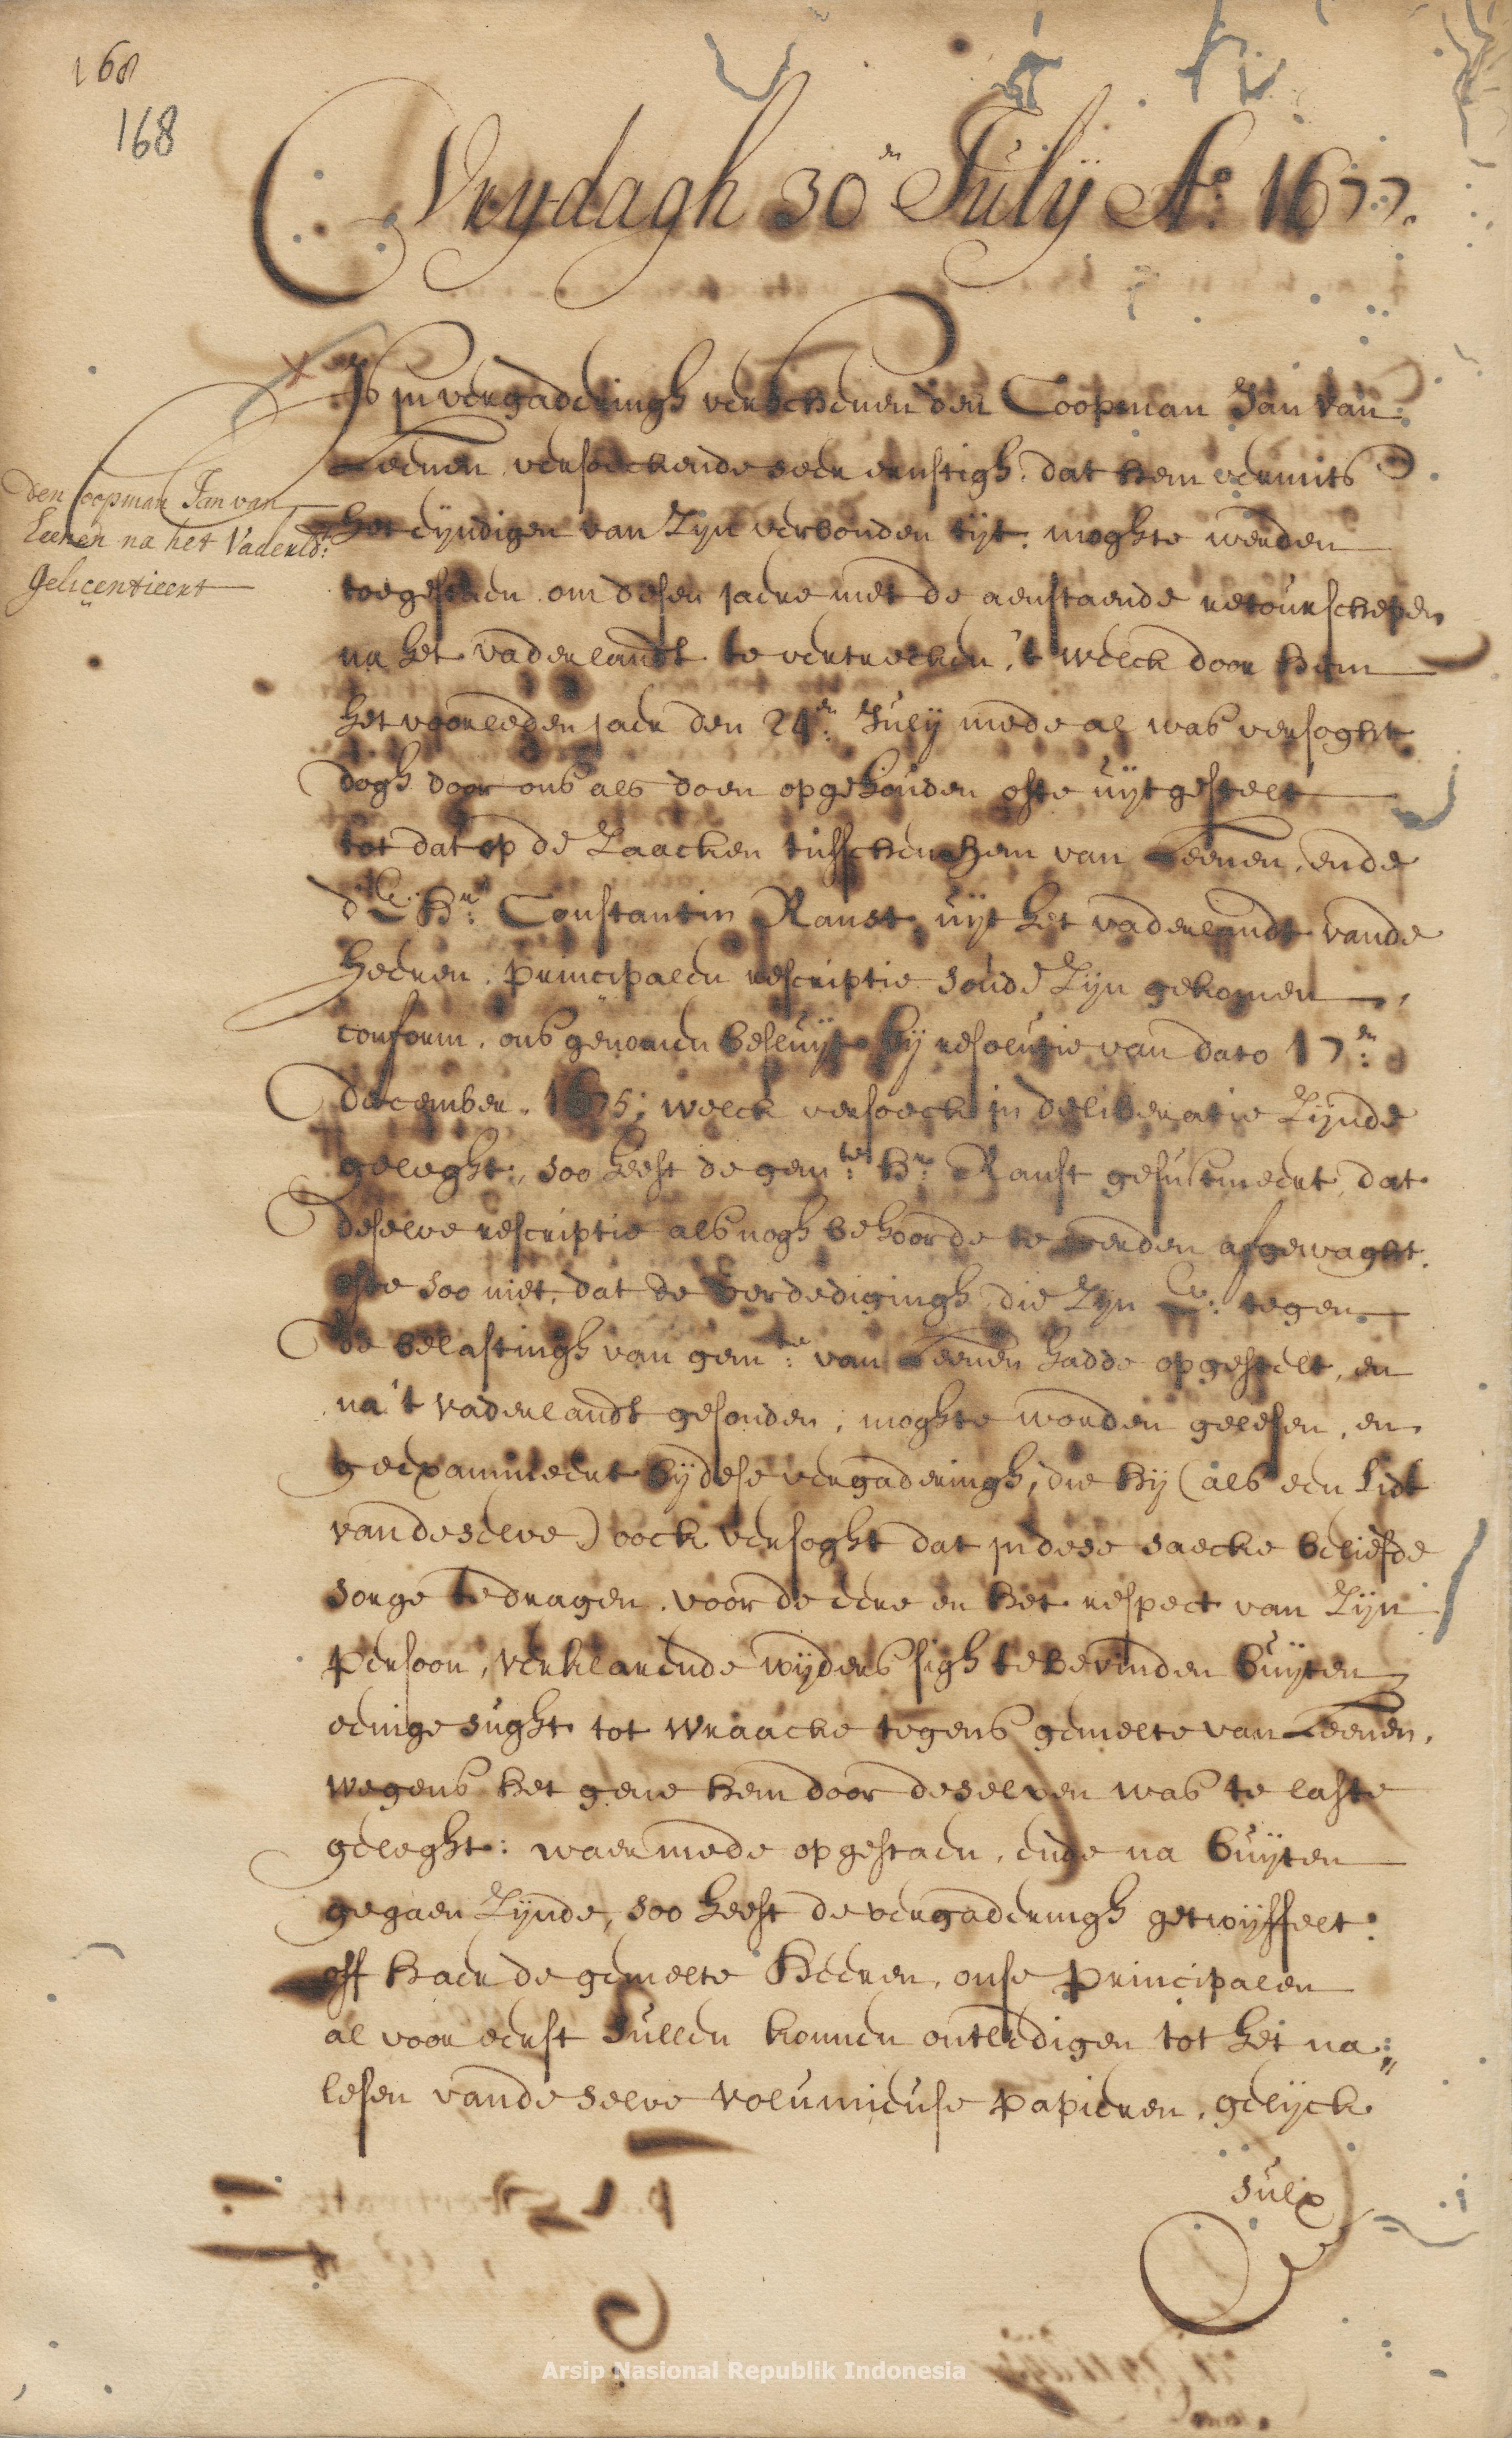 168
168
Vrydagh 30en July Ao: 1677.
Is in vergaderingh verschenen den Coopman Jan van
Leenen versoeckende seer ernstigh, dat hem vermits
het eyndigen van Zyn verbonden tyt, moghte werden
toegestaen om desen jaere met de aenstaende retourschepen
na het vaderlandt te vertrecken, 't welck door hem
het voorleden jaer den 24en: July mede al was versoght
dogh door ons als doen opgehouden ofte uytgestelt
tot dat op de Zaacken tusschen hem van Leenen, ende
d'E. Hr: Constantin Ranst uyt het vaderlandt vande
heeren principalen rescriptie soude Zyn gekomen
conform ons genomen besluyt by resolutie van dato 17en:
december 1675; welck versoeck in deliberatie Zynde
geleght, soo heeft de gemte: Hr: Ranst gesustineert, dat
deselve rescriptie als nogh behoorde te werden afgewaght,
ofte soo niet, dat de verdedigingh die Zyn E: tegen
de belastingh van gemte: van Leenen hadde opgestelt, en
na 't vaderlandt gesonden, moghte worden gelesen, en
geexamineert by dese vergaderingh, die hy (als een Lidt
van deselve) oock versoght dat in dese saecke beliefde
sorge te dragen voor de eere en het respect van Zyn
persoon, verklarende wyders sigh te bevinden buyten
eenige sught tot wraacke tegens gemelte van Leenen,
wegens het gene hem door deselven was te laste
geleght: waermede opgestaen, ende na buyten
gegaen Zynde, soo heeft de vergaderingh getwyffelt
off haer de gemelte Heeren, onse principalen
al voor eerst sullen konnen ontledigen tot het na:
lesen vande selve volumieuse papieren, gelyck
sulx
den Coopman Jan van
Leenen na het Vaderldt:
gelicentieert
Arsip Nasional Republik Indonesia